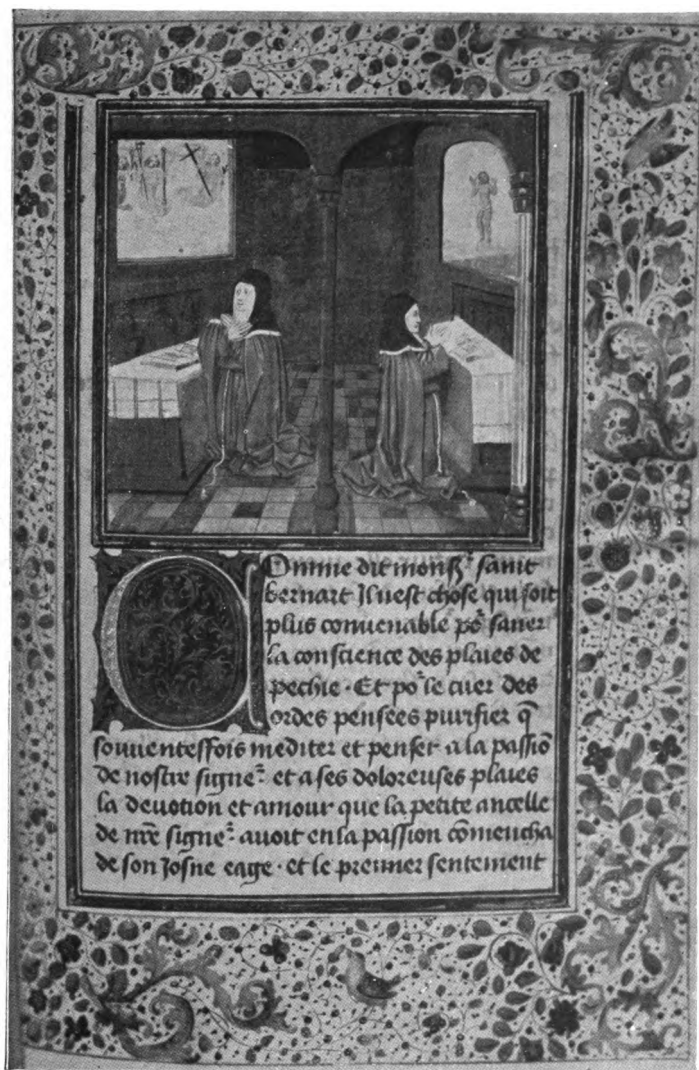 Comme dit monsr saint
bernart Il nest chose qui soit
plus convenable por saner
la conscience des plaies de
pechie · Et por le cuer des
ordes pensees purifier q̄
souventesfois mediter et penser a la passiō
de nostre signer et a ses doloreuses plaies
la devotion et amour que la petite ancelle
de nr̄e signer avoit en la passion cōmencha
de son Josne eage · et le premier sentement